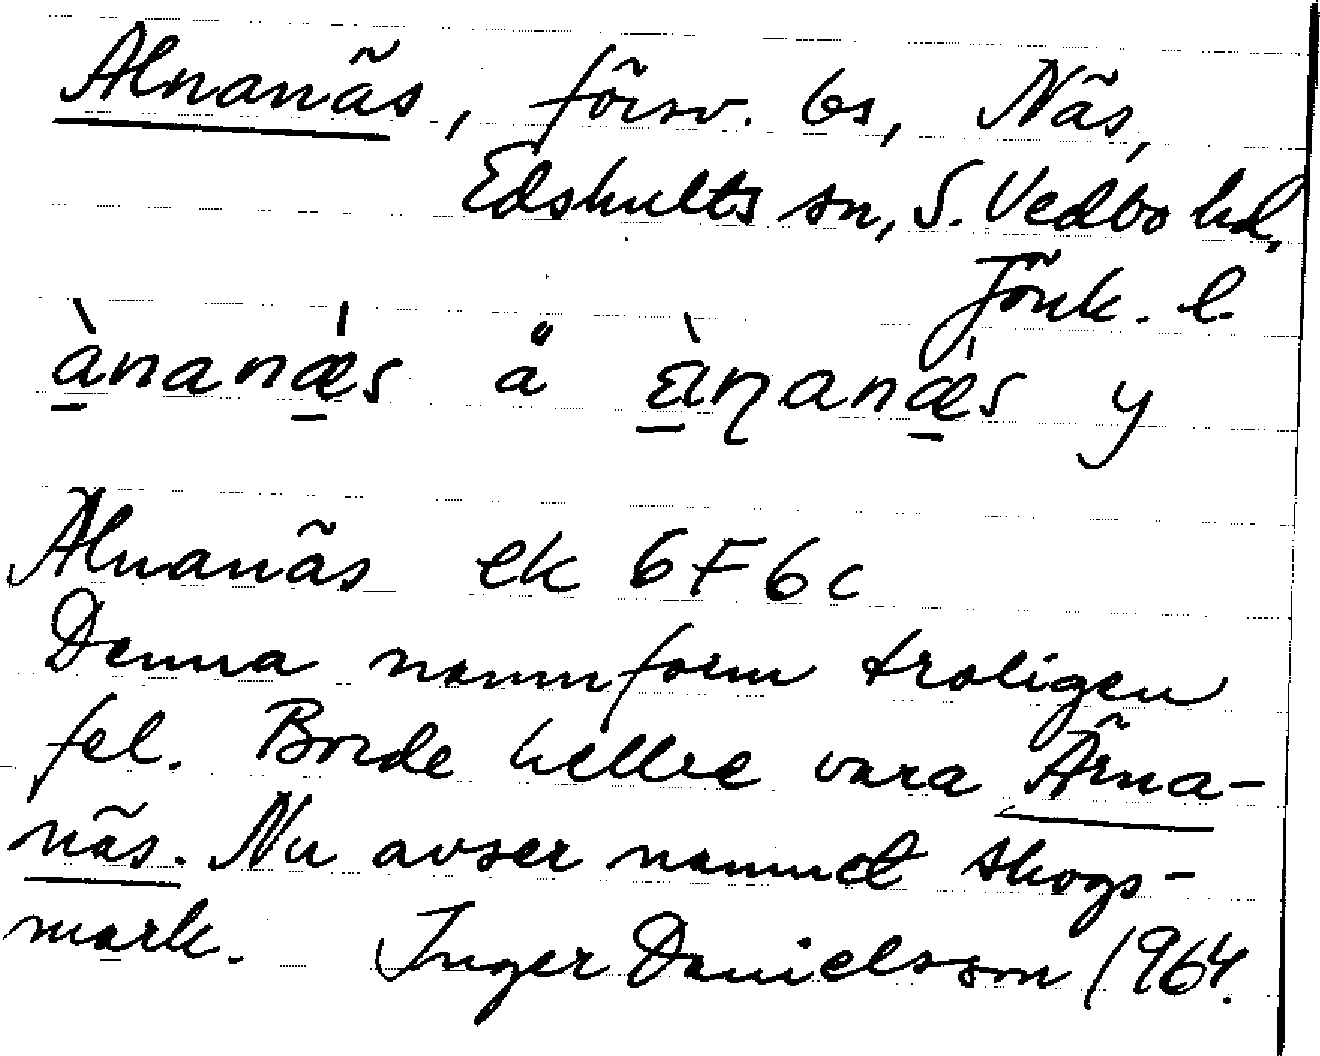 Alnanäs, försv. bs, Näs,
Edshults sn, S. Vedbo hd,
Jönk. l.
à̠nanǽ̠s å à̠ṉanǽ̠s y
Alnanäs ek 6F6c
Denna namnform troligen
fel. Borde hellre vara Ärna-
näs. Nu avser namnet skogs-
mark. Inger Danielsson 1964.